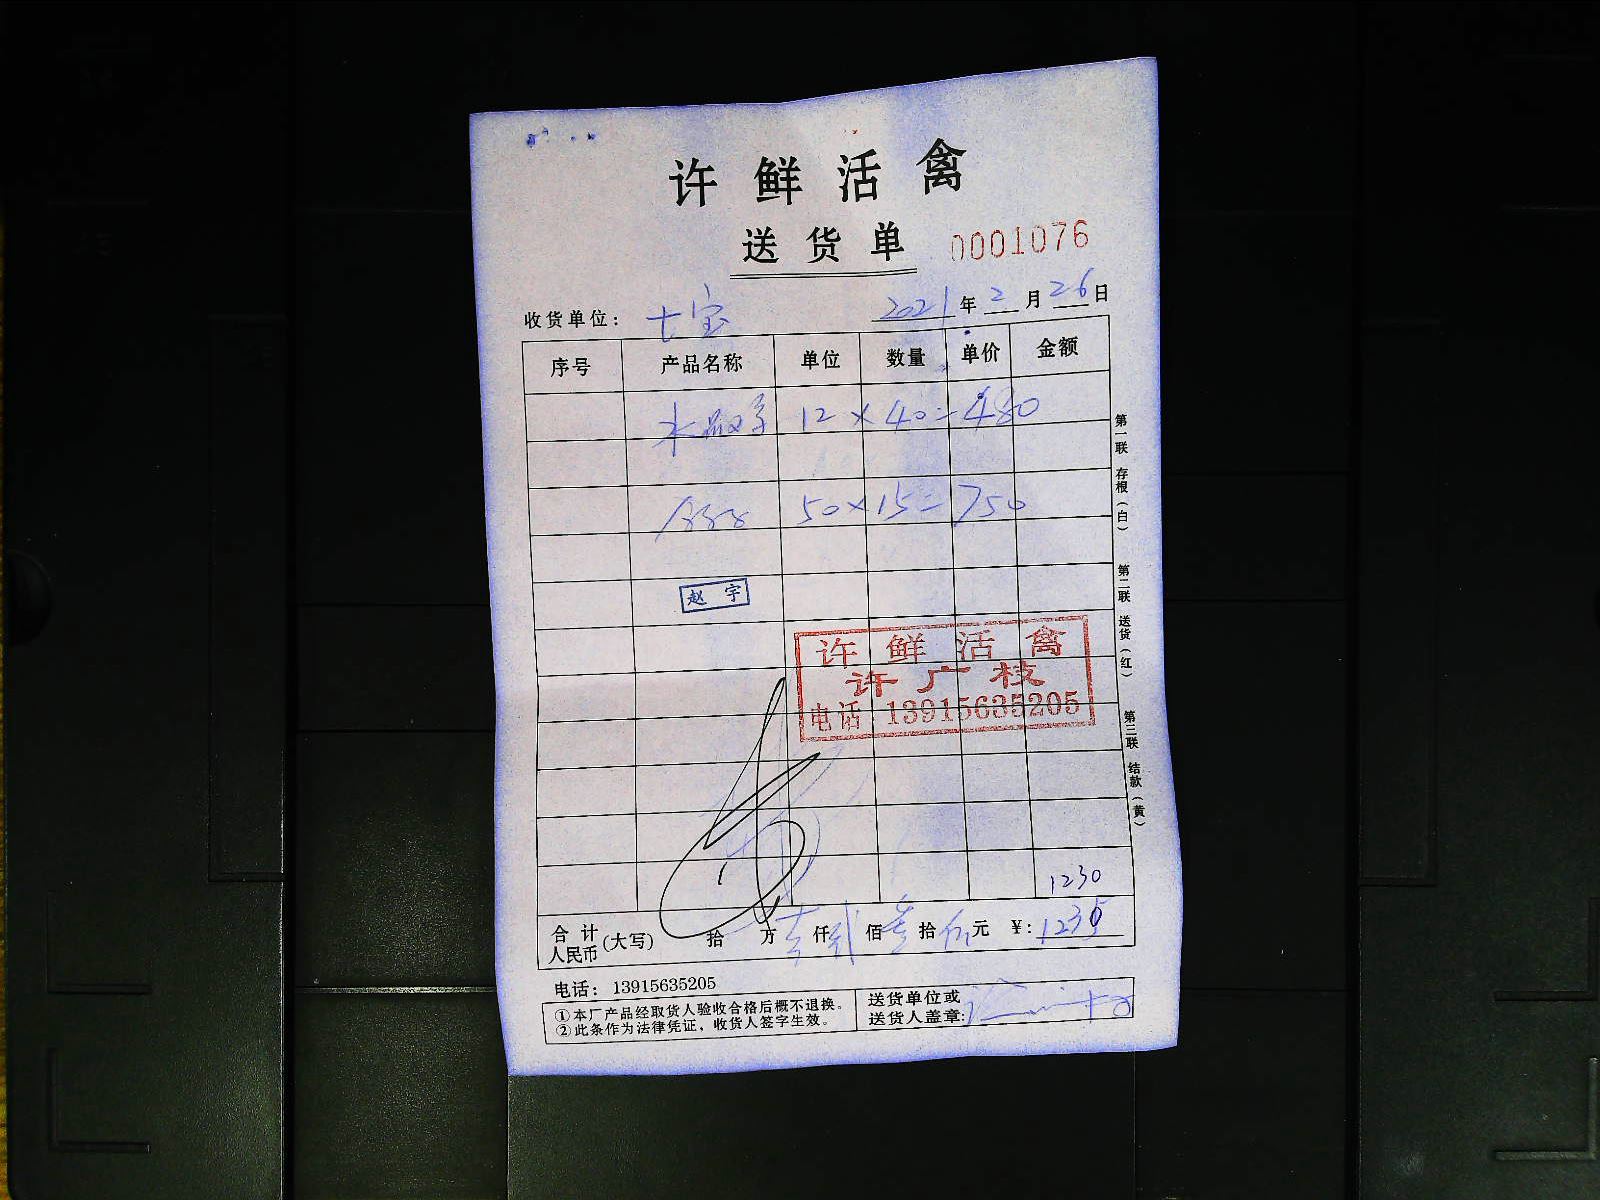 许鲜活禽
送货单 0001076
收货单位： 七宝 2021年2月26日
序号 产品名称 单位 数量 单价 金额
水 12×40=480
50×15=750
赵宇
许鲜活禽
许广枝
电话 13915635205
1230
合计人民币(大写) 拾 万 仟 佰 叁拾 伍元 ￥: 1235
电话：13915635205
①本厂产品经取货人验收合格后概不退换。
②此条作为法律凭证，收货人签字生效。
送货单位或
送货人盖章:
第一联 存根（白） 第二联 送货（红） 第三联 结款（黄）